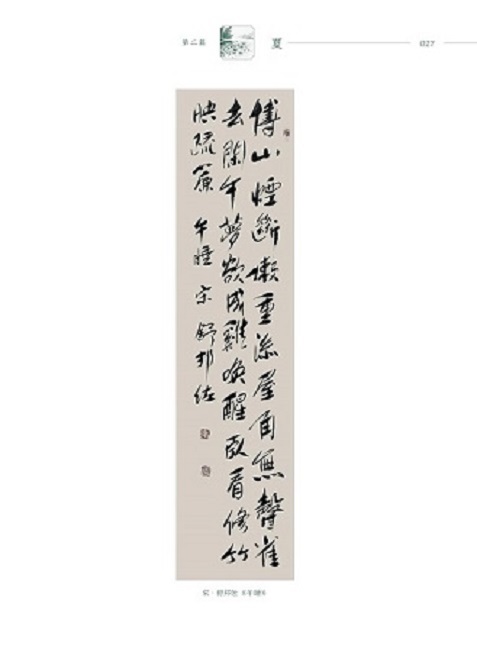 第二辑 夏 027
博山煙斷懶重添屋角無聲雀
去閑午夢欲成雞喚醒臥看修竹
映疏簾 午睡 宋 舒邦佐
宋·舒邦佐《午睡》